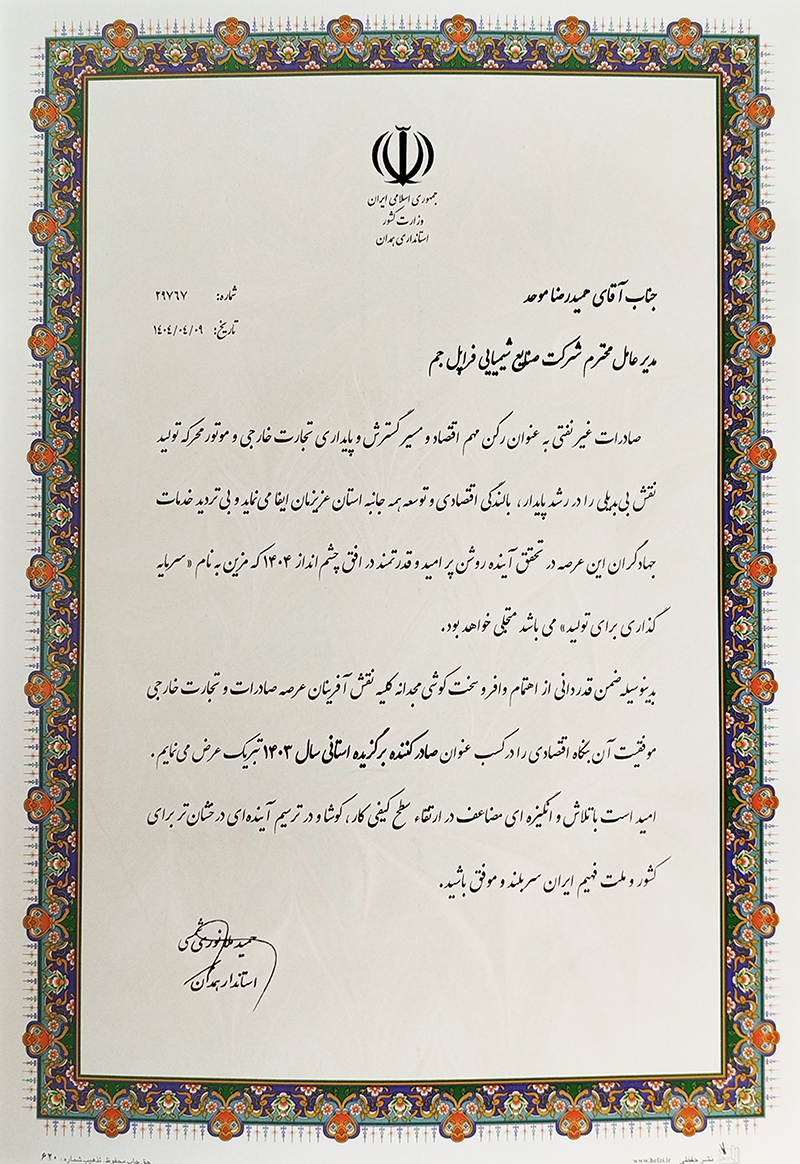 جمهوری اسلامی ایران
وزارت کشور
استانداری همدان
شماره: ۲۹۷۶۷
تاریخ: ۱۴۰۴/۰۴/۰۹
جناب آقای حمیدرضا موحد
مدیر عامل محترم شرکت صنایع شیمیایی فراپل جم
صادرات غیر نفتی به عنوان رکن مهم اقتصاد و مسیر گسترش و پایداری تجارت خارجی و موتور محرکه تولید
نقش بی‌بدیلی را در رشد پایدار، بالندگی اقتصادی و توسعه همه جانبه استان عزیزمان ایفا می‌نماید و بی تردید خدمات
جهادگران این عرصه در تحقق آینده روشن پر امید و قدرتمند در افق چشم انداز ۱۴۰۴ که مزین به نام «سرمایه
گذاری برای تولید» می باشد متجلی خواهد بود.
بدینوسیله ضمن قدردانی از اهتمام وافر و سخت کوشی مجدانه کلیه نقش آفرینان عرصه صادرات و تجارت خارجی
موفقیت آن بنگاه اقتصادی را در کسب عنوان صادر کننده برگزیده استانی سال ۱۴۰۳ تبریک عرض می‌نمایم.
امید است با تلاش و انگیزه ای مضاعف در ارتقاء سطح کیفی کار، کوشا و در ترسیم آینده‌ای درخشان تر برای
کشور و ملت فهیم ایران سربلند و موفق باشید.
حمید ملانوری شمسی
استاندار همدان
حق چاپ محفوظ. تذهیب شماره: ۶۲۰
www.hefzi.ir نشر حفظی